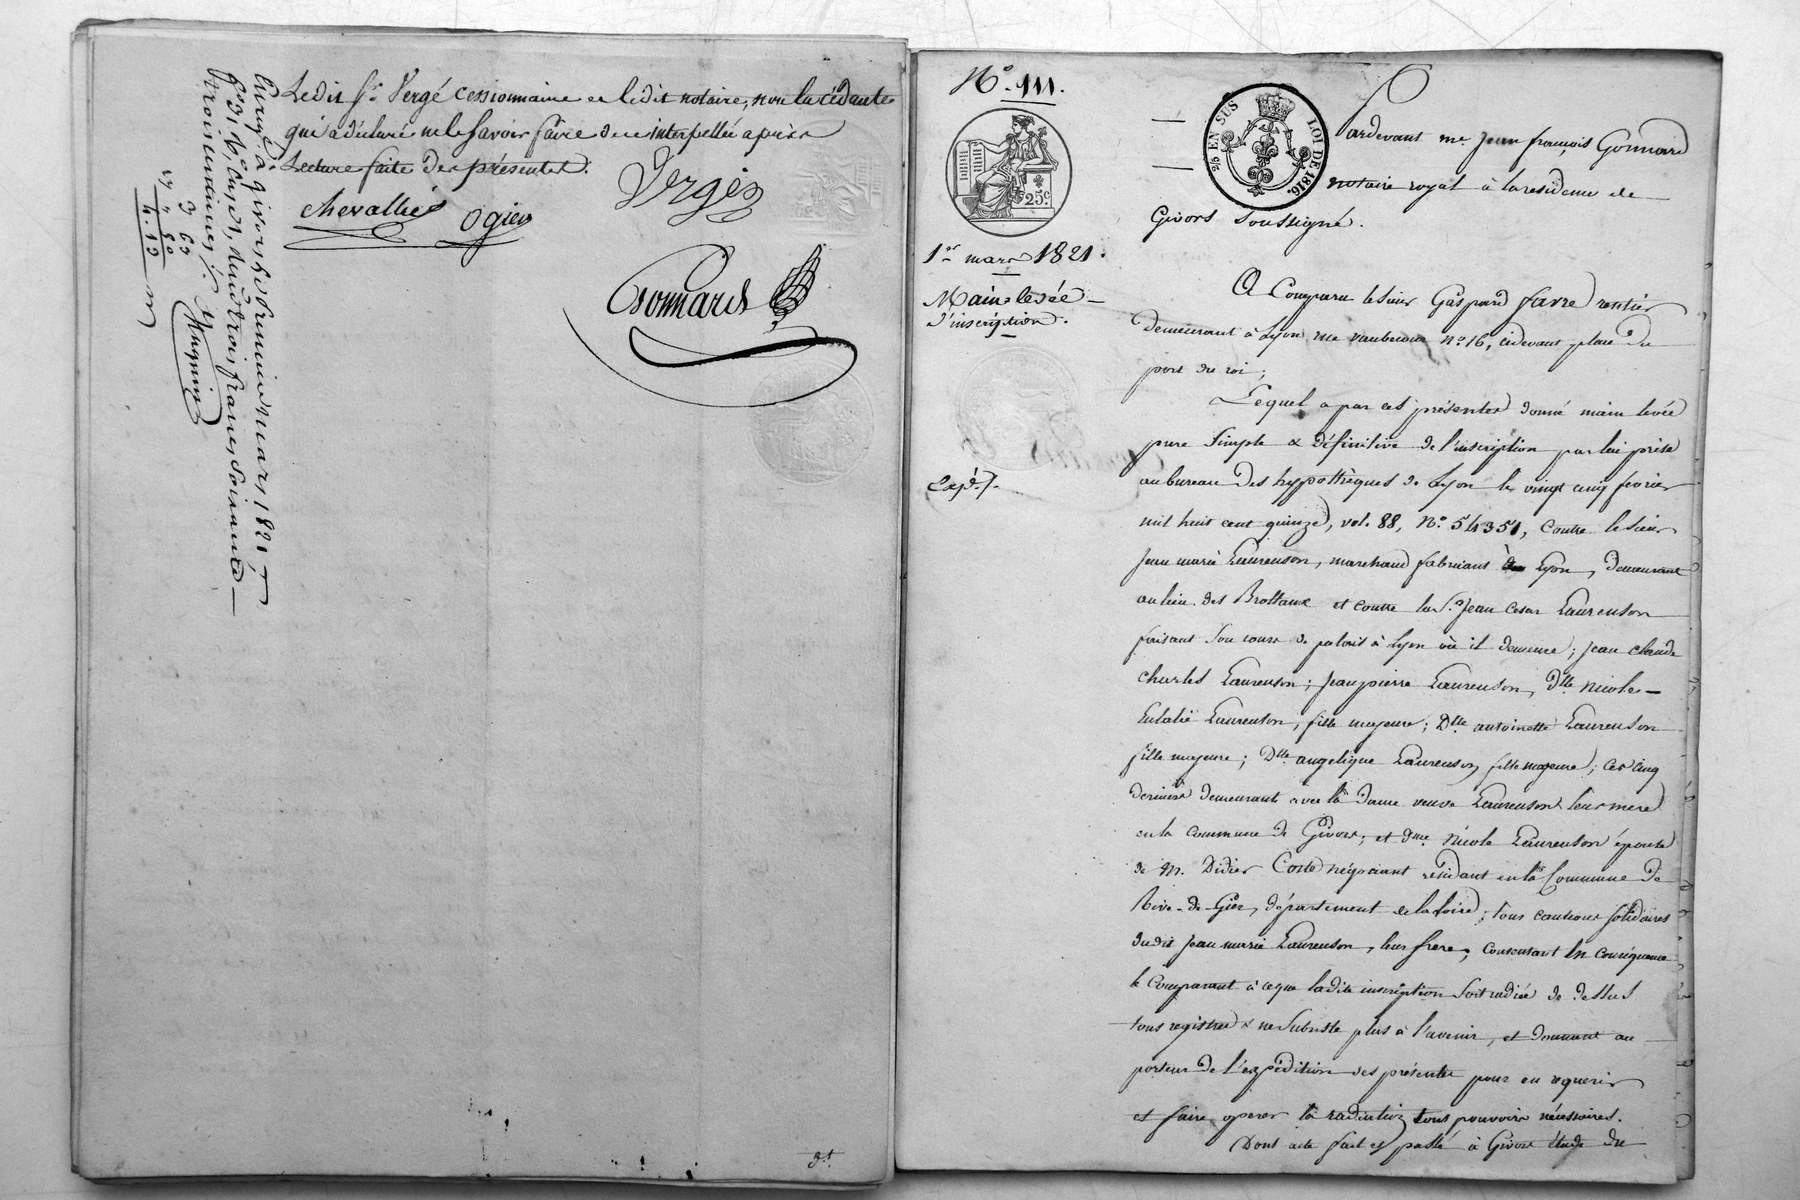 Ledit Sr. Vergé cessionnaire et ledit notaire, non la cédante
qui a déclaré ne le savoir faire de ce interpellée après
Lecture faite des présentes.
Vergé
chevallié Ogier
Gonnard
Enregé. à givors le premier mars 1821,
fo. 31 Vo. Cases
trois centimes
Magnin
3 63
4.19
3t.
No. 111.
25c
1er mars 1821.
Main levée
d'inscription.
Expé. f.
25 EN SUS
LOI DE 1816
Pardevant me. Jean françois Gonnard
notaire royal à la résidence de
Givors Soussigné.
A Comparu le sieur Gaspard favre rentier
demeurant à Lyon rue vaubecour no. 16, cidevant place du
port du roi;
Lequel a par ces présentes donné main levée
pure Simple & définitive de l'inscription par lui prise
au bureau des hyppothèques de Lyon le vingt cinq fevrier
mil huit cent quinze, vol. 88, No. 54351, contre le sieur
Jean marie Laurenson, marchand fabricant à Lyon, demeurant
au lieu des Brottaux et contre les Srs. Jean Cesar Laurenson
faisant son cours de palais à Lyon où il demeure; Jean claude
Charles Laurenson; Jean pierre Laurenson, Dlle Nicole-
Eulalie Laurenson, fille majeure; Dlle antoinette Laurenson
fille majeure; Dlle angelique Laurenson, fille majeure; ces cinq
derniers demeurant avec la dame veuve Laurenson leur mere
en la commune de Givors; et dme. Nicole Laurenson épouse
de M. Didier Coste négociant résidant en la Commune de
Rive-de-Gier, département de la Loire; tous cautions solidaires
dudit Jean marie Laurenson, leur frere, consentant en conséquence
le Comparant à ceque ladite inscription soit radiée de dessus
tous registres & ne Subsiste plus à l'avenir, et donnant au
porteur de l'expédition des présentes pour en requérir
et faire operer la radiation tous pouvoirs nécessaires.
Dont acte fait et passé à Givors étude du